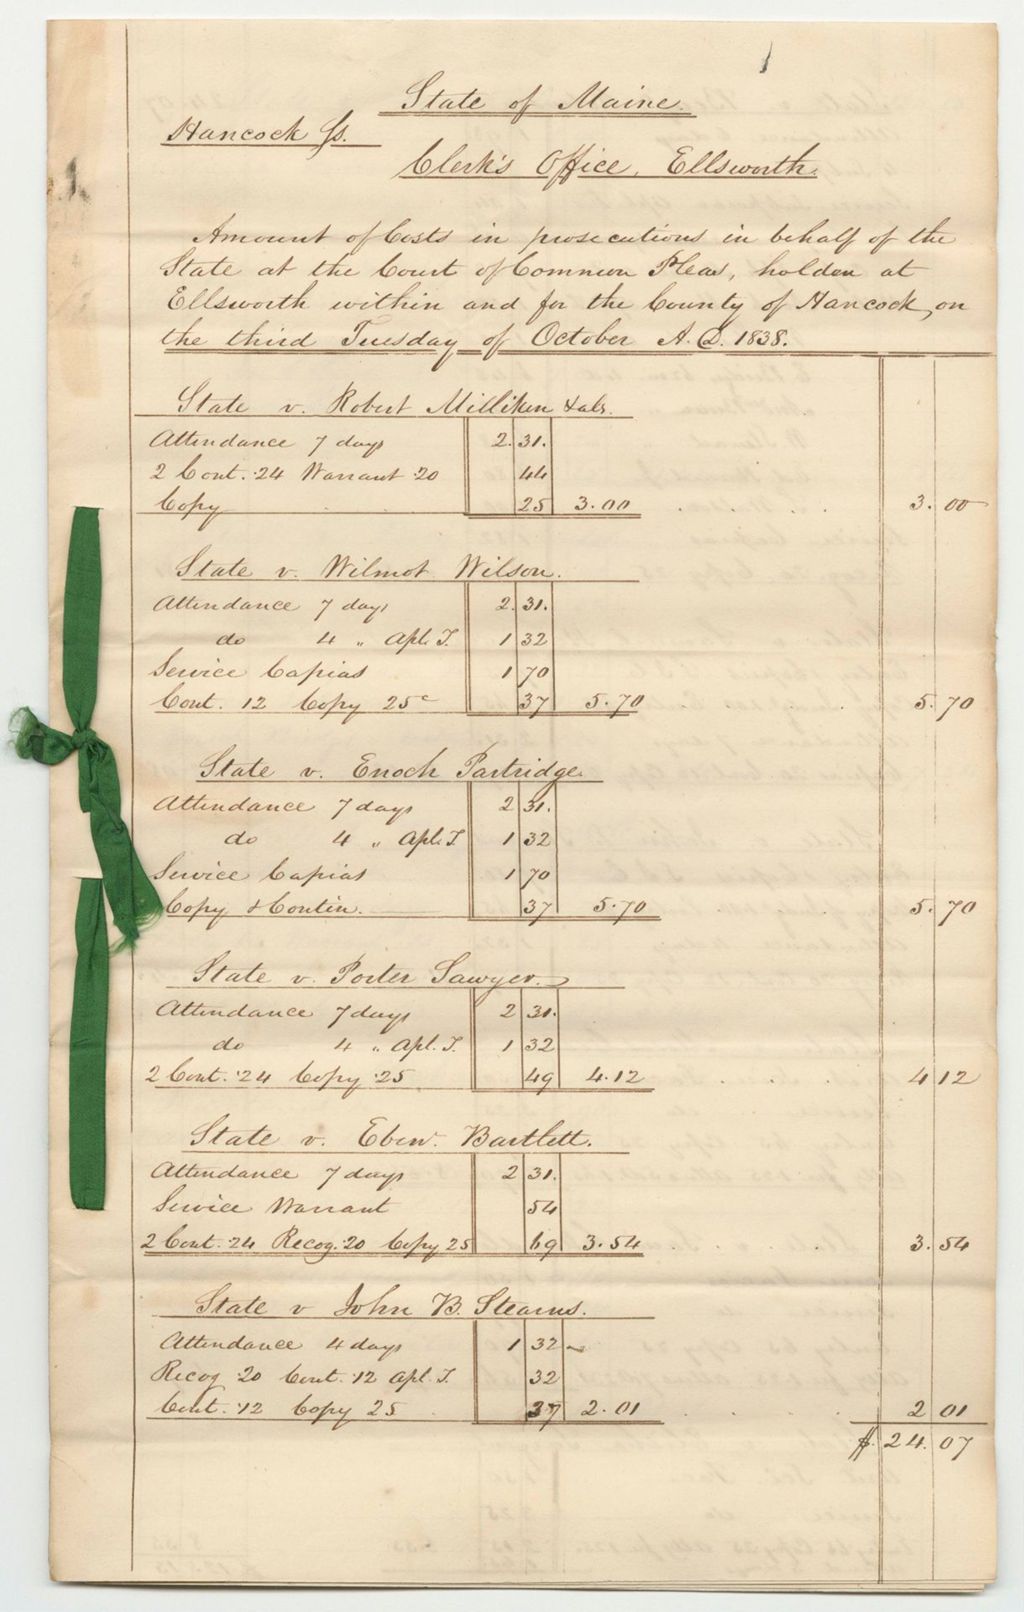 State of Maine.
Hancock Ss.
Clerk's Office, Ellsworth.
Amount of Costs in prosecutions in behalf of the
State at the Court of Common Pleas, holden at
Ellsworth within and for the County of Hancock, on
the third Tuesday of October A.D. 1838.
State v. Robert Milliken & als.
Attendance 7 days 2.31.
2 Cont. .24 Warrant .20 44
Copy 25 3.00 3.00
State v. Wilmot Wilson.
Attendance 7 days 2.31.
do 4 " Apl. T. 1 32
Service Capias 1 70
Cont. 12 Copy 25c 37 5.70 5.70
State v. Enoch Partridge.
Attendance 7 days 2 31.
do 4 " Apl. T 1 32
Service Capias 1 70
Copy & Contin. 37 5.70 5.70
State v. Porter Sawyer.
Attendance 7 days 2 31.
do 4 " Apl. T. 1 32
2 Cont. .24 Copy .25 49 4.12 4 12
State v. Ebenr. Bartlett.
Attendance 7 days 2 31.
Service Warrant 54
2 Cont. .24 Recog. 20 Copy 25 69 3.54 3.54
State v John B. Stearns.
Attendance 4 days 1 32
Recog 20 Cont. .12 Apl. T. 32
Cont. .12 Copy 25 37 2.01 2 01
$.24.07